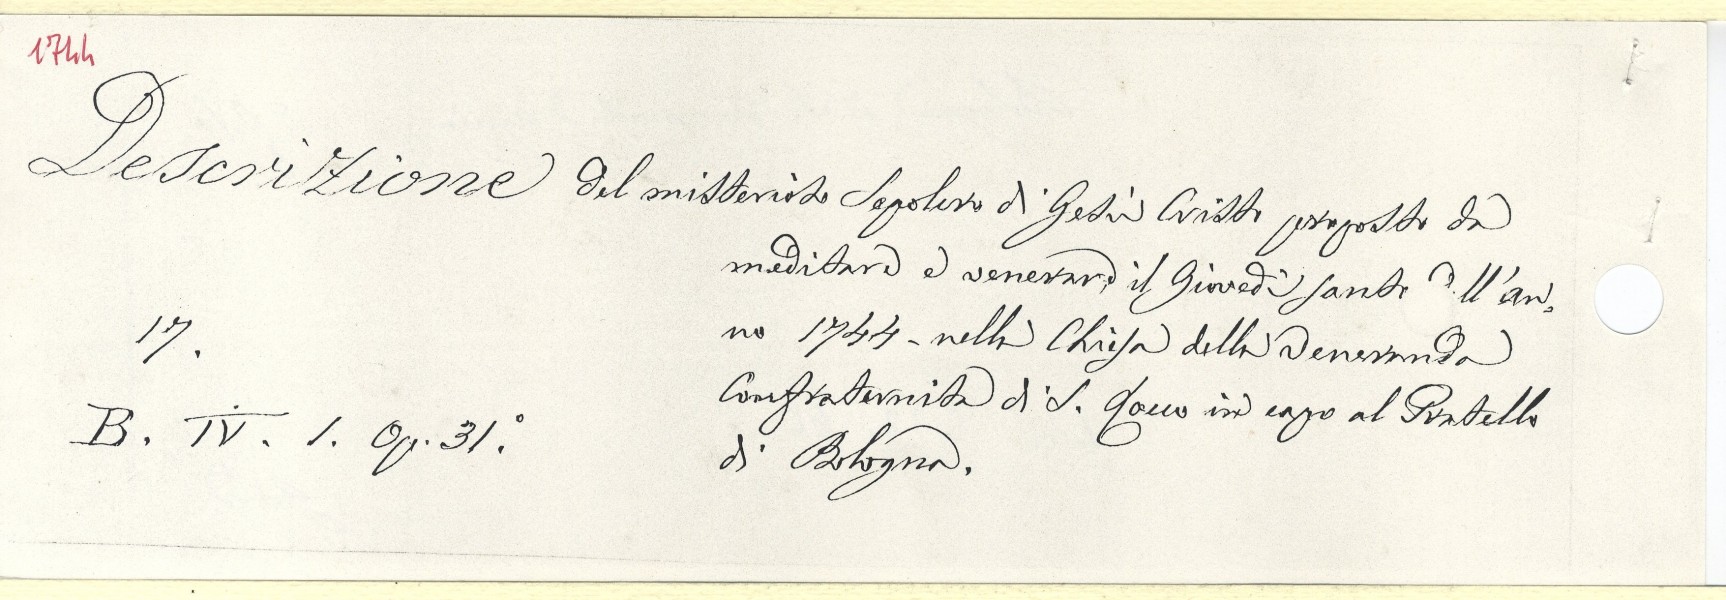 1744
Descrizione del misterioso Sepolcro di Gesù Cristo proposto da
meditare e venerare il Giovedì santo dell'an,
no 1744 - nella Chiesa della Veneranda
17.
Confraternita di S. Rocco in capo al Pratello
B. IV. 1. Op. 31.°
di Bologna.